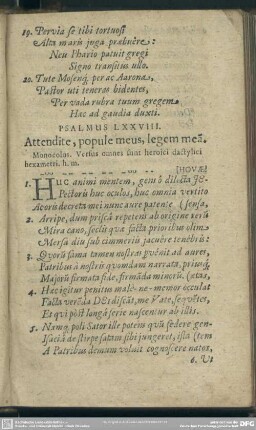 19. Pervia se tibi tortuosi
Alta maris juga præbuêre:
Neu Phario patuit gregi
Signo transitus ullo.
20. Tute Mosenq́, per ac Aarona,
Pastor uti teneras bidentes,
Per vada rubra tuum gregem
Hac ad gaudia duxti.
PSALMUS LXXVIII.
Attendite, popule meus, legem meã.
Monocolos. Versus omnes sunt heroici dactylici
hexametri. h. m.
[HOVÆ]
1. HUC animi mentem, genus ô dilecta JE-
Pectoris huc oculos, huc omnia vertito
Atoris decreta mei nunc aure patente (sensa,
2. Arripe, dum priscâ repetens ab origine rerũ
Mira cano, seclis quæ facta prioribus olim
Mersa diu sub cimmeriis jacuêre tenebris:
3. Quorũ fama tamen nostras pvênit ad aures,
Patribus à nostris quondam narrata, priusq́,
Majorũ firmata fide, firmãda minorũ, (ætas,
4. Hæc igitur penitus male-ne-memor occulat
Facta verẽda DEI discãt, me Vate, sequẽtes,
Et qui pòst longâ serie nascentur ab illis.
5. Namq́, poli Sator ille potens quũ sedere gen-
Isacidâ de stirpe satam sibi jungeret, istã (tem
A Patribus demum voluit cognoscere natos,
6. Ut